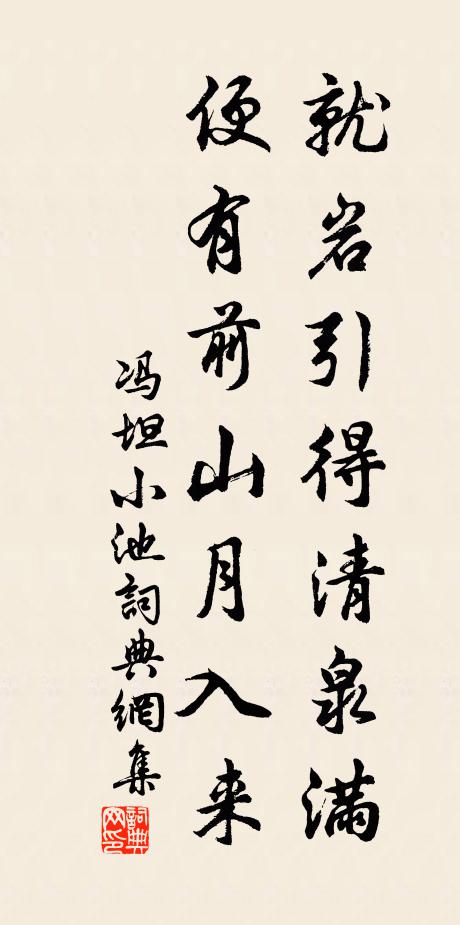 就岩引得清泉满
便有前山月入来
冯坦小池詞典網集
詞典网印